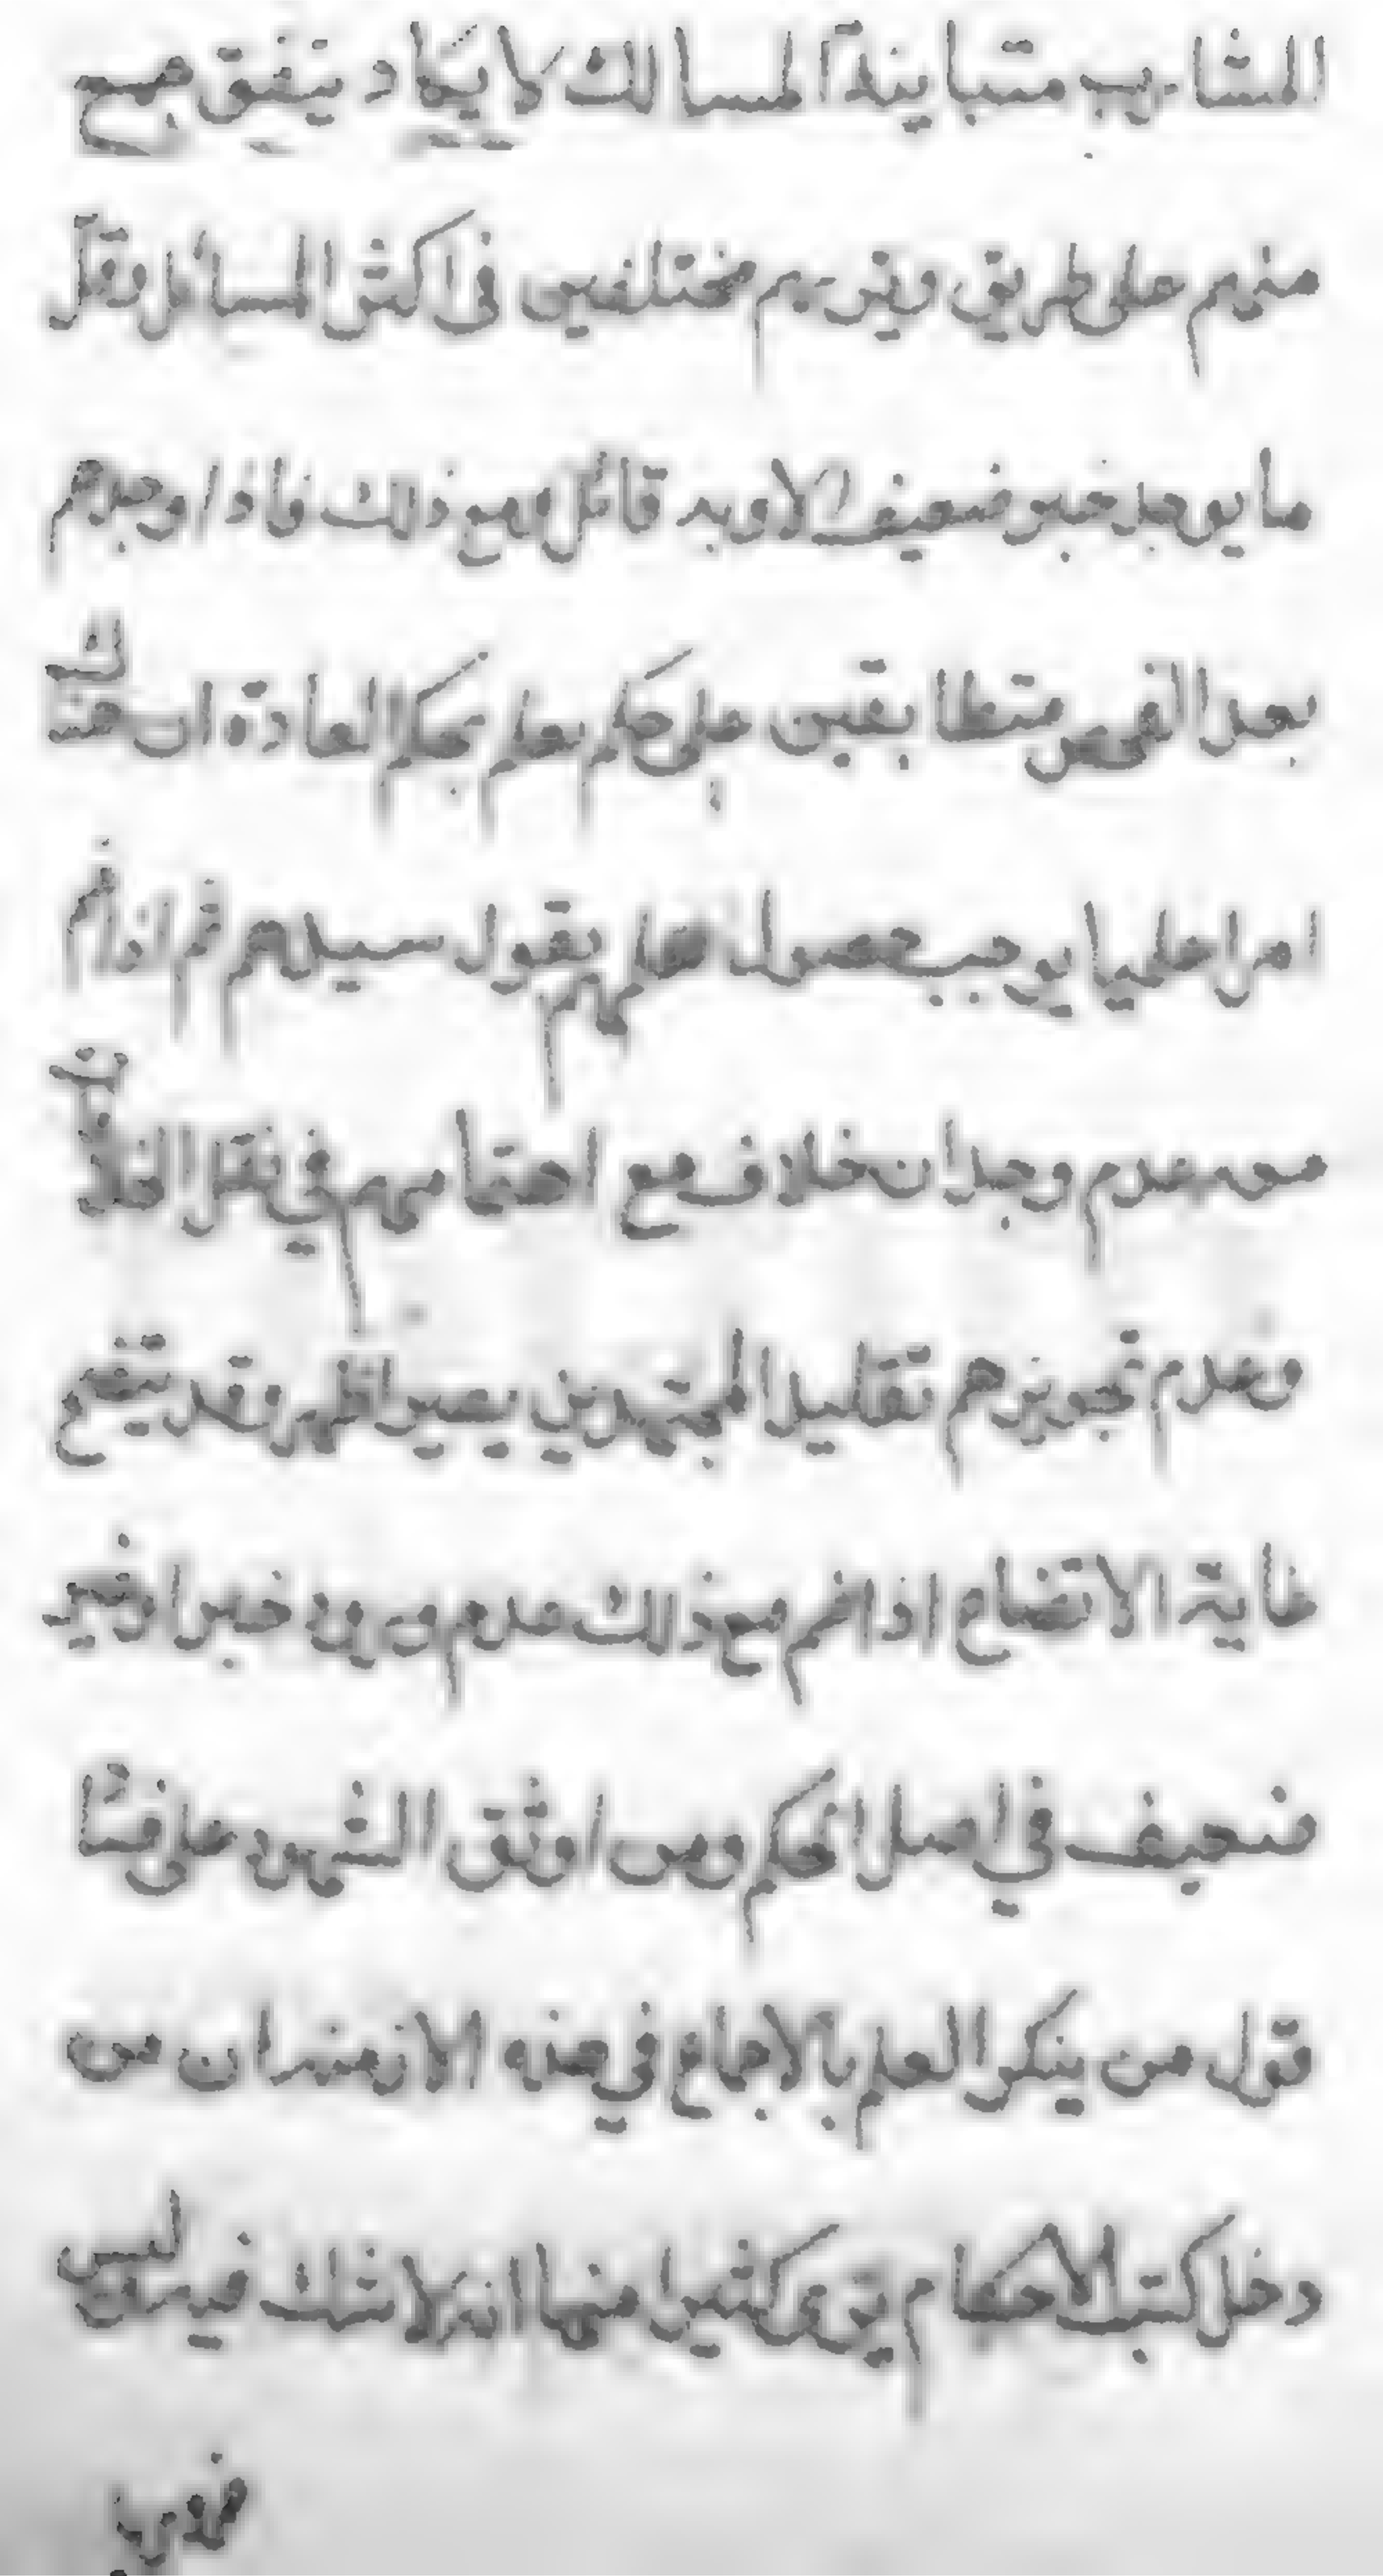 المشارب متباينة المسالك لا يكاد يتفق جمع
منهم على طريق وتريهم مختلفين في اكثر المسائل وقل
ما يوجد خبر ضعيف الا وبه قائل ومع ذلك فاذا وجدتهم
بعد الفحص متطابقين على حكم يعلم بحكم العادة ان هناك
امرا علميا يوجب حصول العلم لهم بقول سيدهم ثم اذا انضم
معه عدم وجدان خلاف مع اهتمامهم في نقل الخلاف
وعدم تجويزهم تقليد المجتهدين يصير اظهر وقد يتضح
غاية الاتضاح اذا انضم مع ذلك عدم ورود خبر او خبر
ضعيف في اصل الحكم ومن اوثق الشهود على فساد
قول من ينكر العلم بالاجماع في هذه الازمنة ان من
دخل كتب الاحكام يرى كثيرا منها انه لا شك فيه وليس